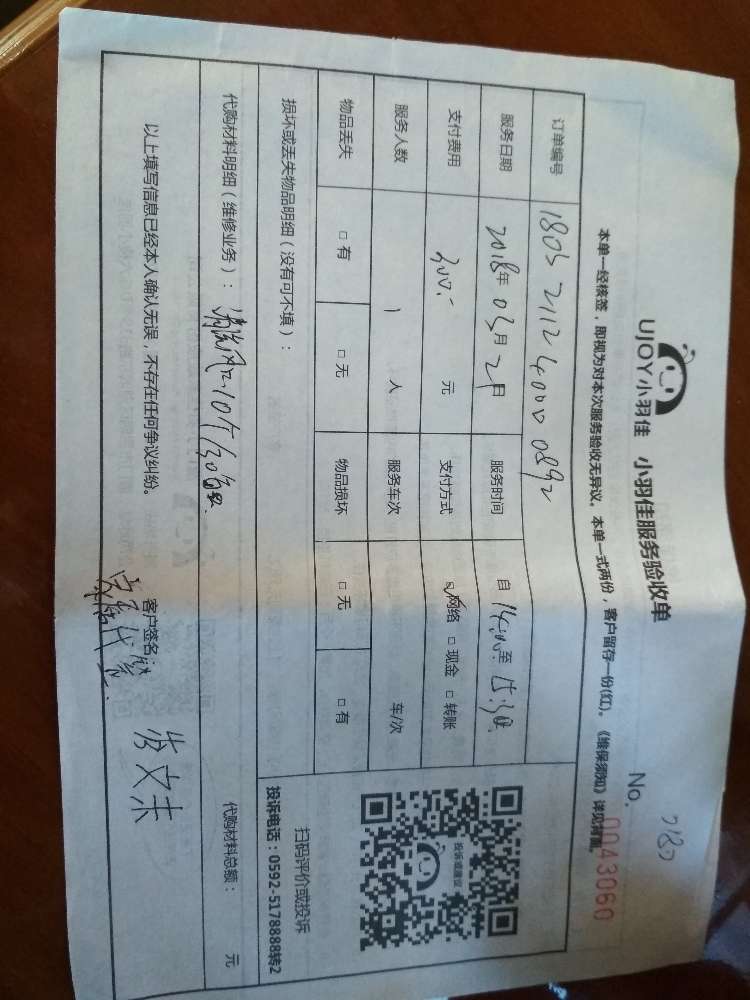 UJOY小羽佳 小羽佳服务验收单
No. 0043060
本单一经核签，即视为对本次服务验收无异议。本单一式两份，客户留存一份(红)。《维保须知》详见背面
订单编号 1803 2112 4000 0892
服务日期 2018年 03月 21日 服务时间 自 14:00 至
支付费用 300.- 元 支付方式 ☑网络 □现金 □转账
服务人数 1 人 服务车次 车/次
物品丢失 □有 □无 物品损坏 □无 □有
损坏或丢失物品明细（没有可不填）：
代购材料明细（维修业务）： 代购材料总额： 元
以上填写信息已经本人确认无误，不存在任何争议纠纷。 客户签名：
投诉或建议
扫码评价或投诉
投诉电话：0592-5178888转2